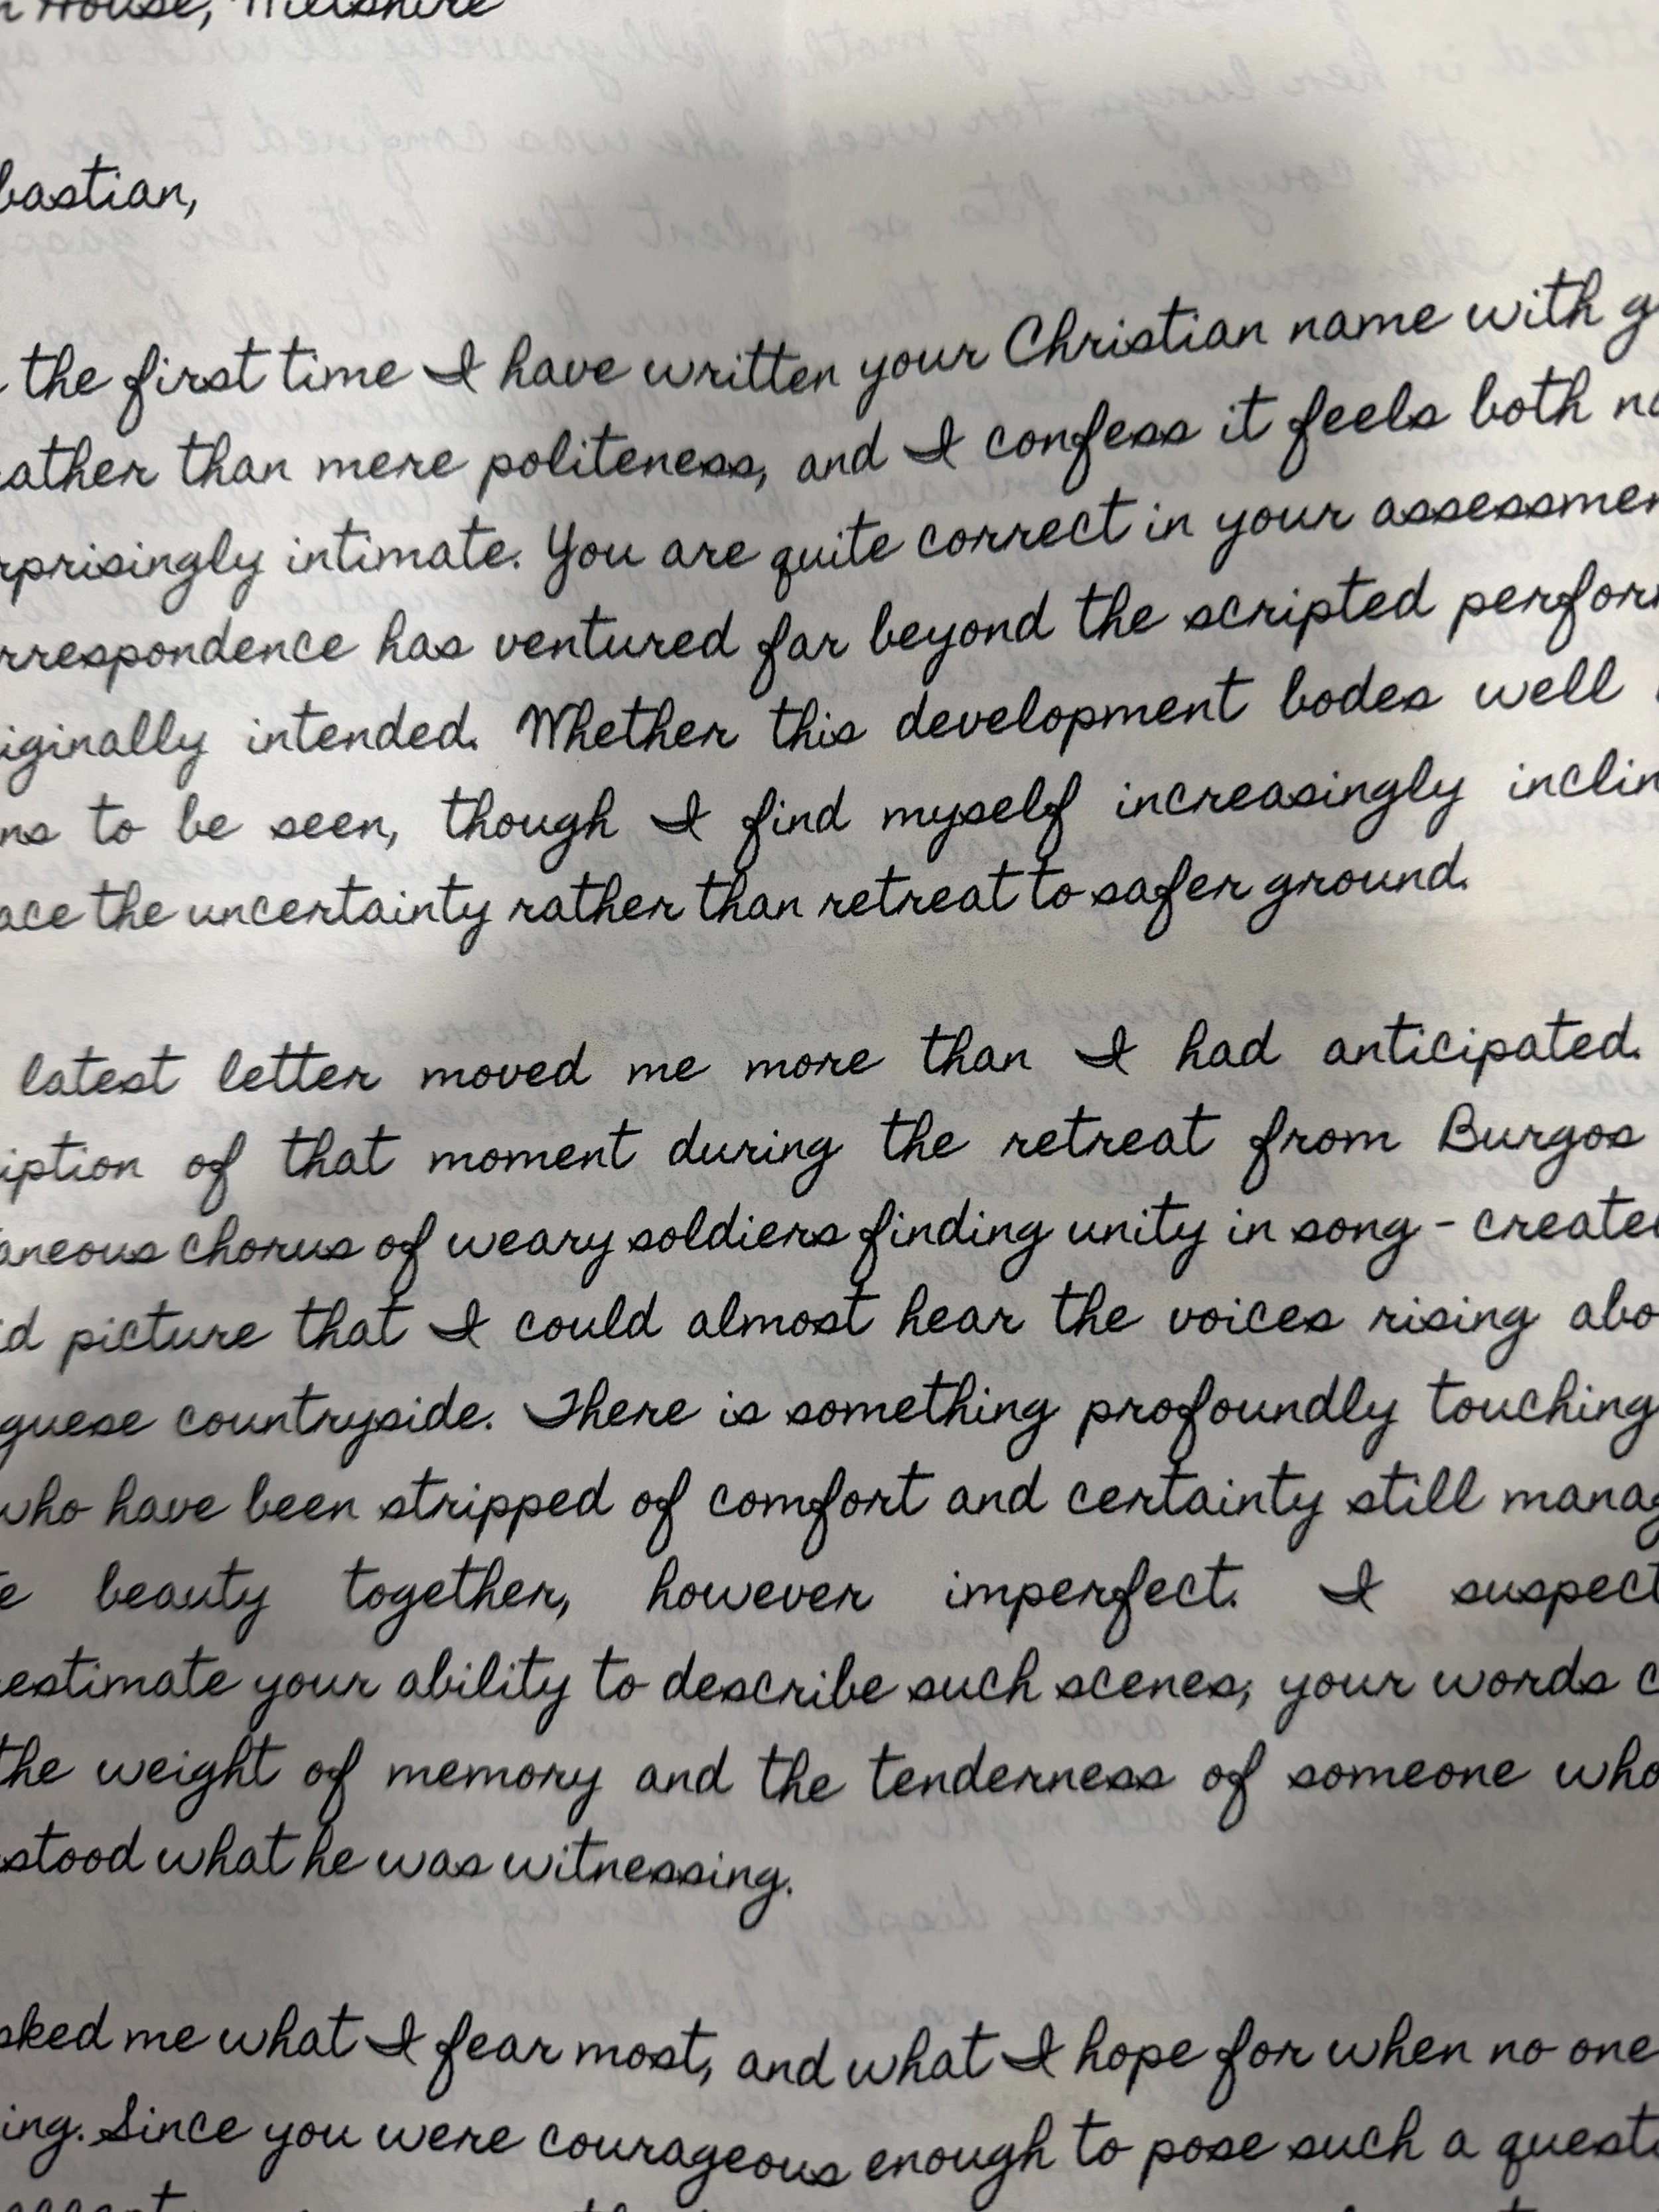 House, Wiltshire
bastian,
the first time I have written your Christian name with g
ather than mere politeness, and I confess it feels both na
rprisingly intimate. You are quite correct in your assessmen
rrespondence has ventured far beyond the scripted perfor
iginally intended. Whether this development bodes well
ns to be seen, though I find myself increasingly inclin
ace the uncertainty rather than retreat to safer ground.
latest letter moved me more than I had anticipated.
iption of that moment during the retreat from Burgos
aneous chorus of weary soldiers finding unity in song - create
id picture that I could almost hear the voices rising abo
guese countryside. There is something profoundly touching
who have been stripped of comfort and certainty still manag
e beauty together, however imperfect. I suspect
estimate your ability to describe such scenes; your words c
the weight of memory and the tenderness of someone who
stood what he was witnessing.
sked me what I fear most, and what I hope for when no one
ing. Since you were courageous enough to pose such a questi